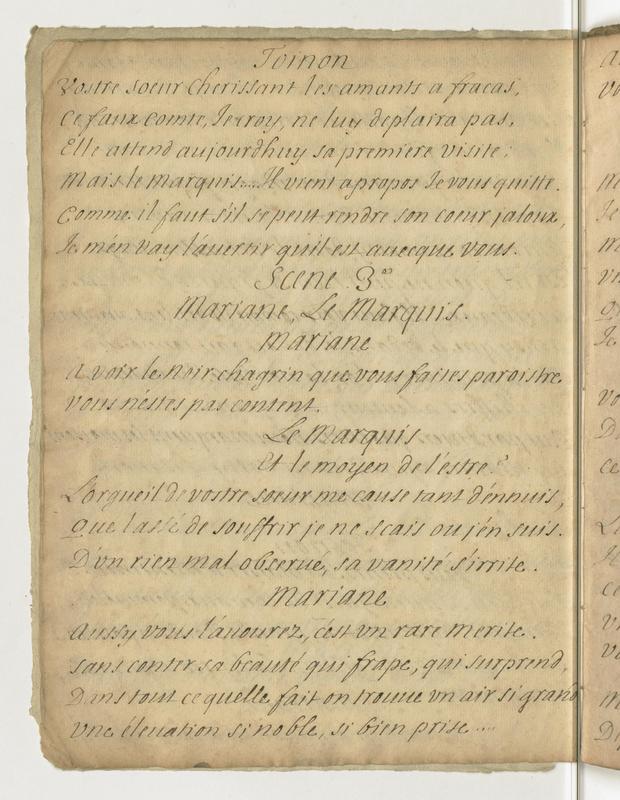 Toinon
Vostre soeur cherissant les amants a fracas,
Ce faux comte, Ie croy, ne luy deplaira pas.
Elle attend aujourdhuy sa premiere visite;
Mais le Marquis.... Il vient apropos Ie vous quitte.
Comme il faut s'il se peut rendre son coeur jaloux,
Ie m'en vay l'auertir qu'il est auecque vous.
Scene. 3.
Mariane, Le Marquis.
Mariane
A voir le noir chagrin que vous faites paroistre
vous n'estes pas content.
Le Marquis
Et le moyen de l'estre?
L'orgueil de vostre soeur me cause tant d'ennuis,
Que lassé de souffrir je ne scais ou j'en suis.
D'vn rien mal obserué, sa vanité s'irrite.
Mariane
Aussy vous l'auourez, c'est vn rare merite.
sans conter sa beauté qui frape, qui surprend,
Dans tout ce quelle fait on trouue vn air si grand
Vne éleuation si noble, si bien prise....